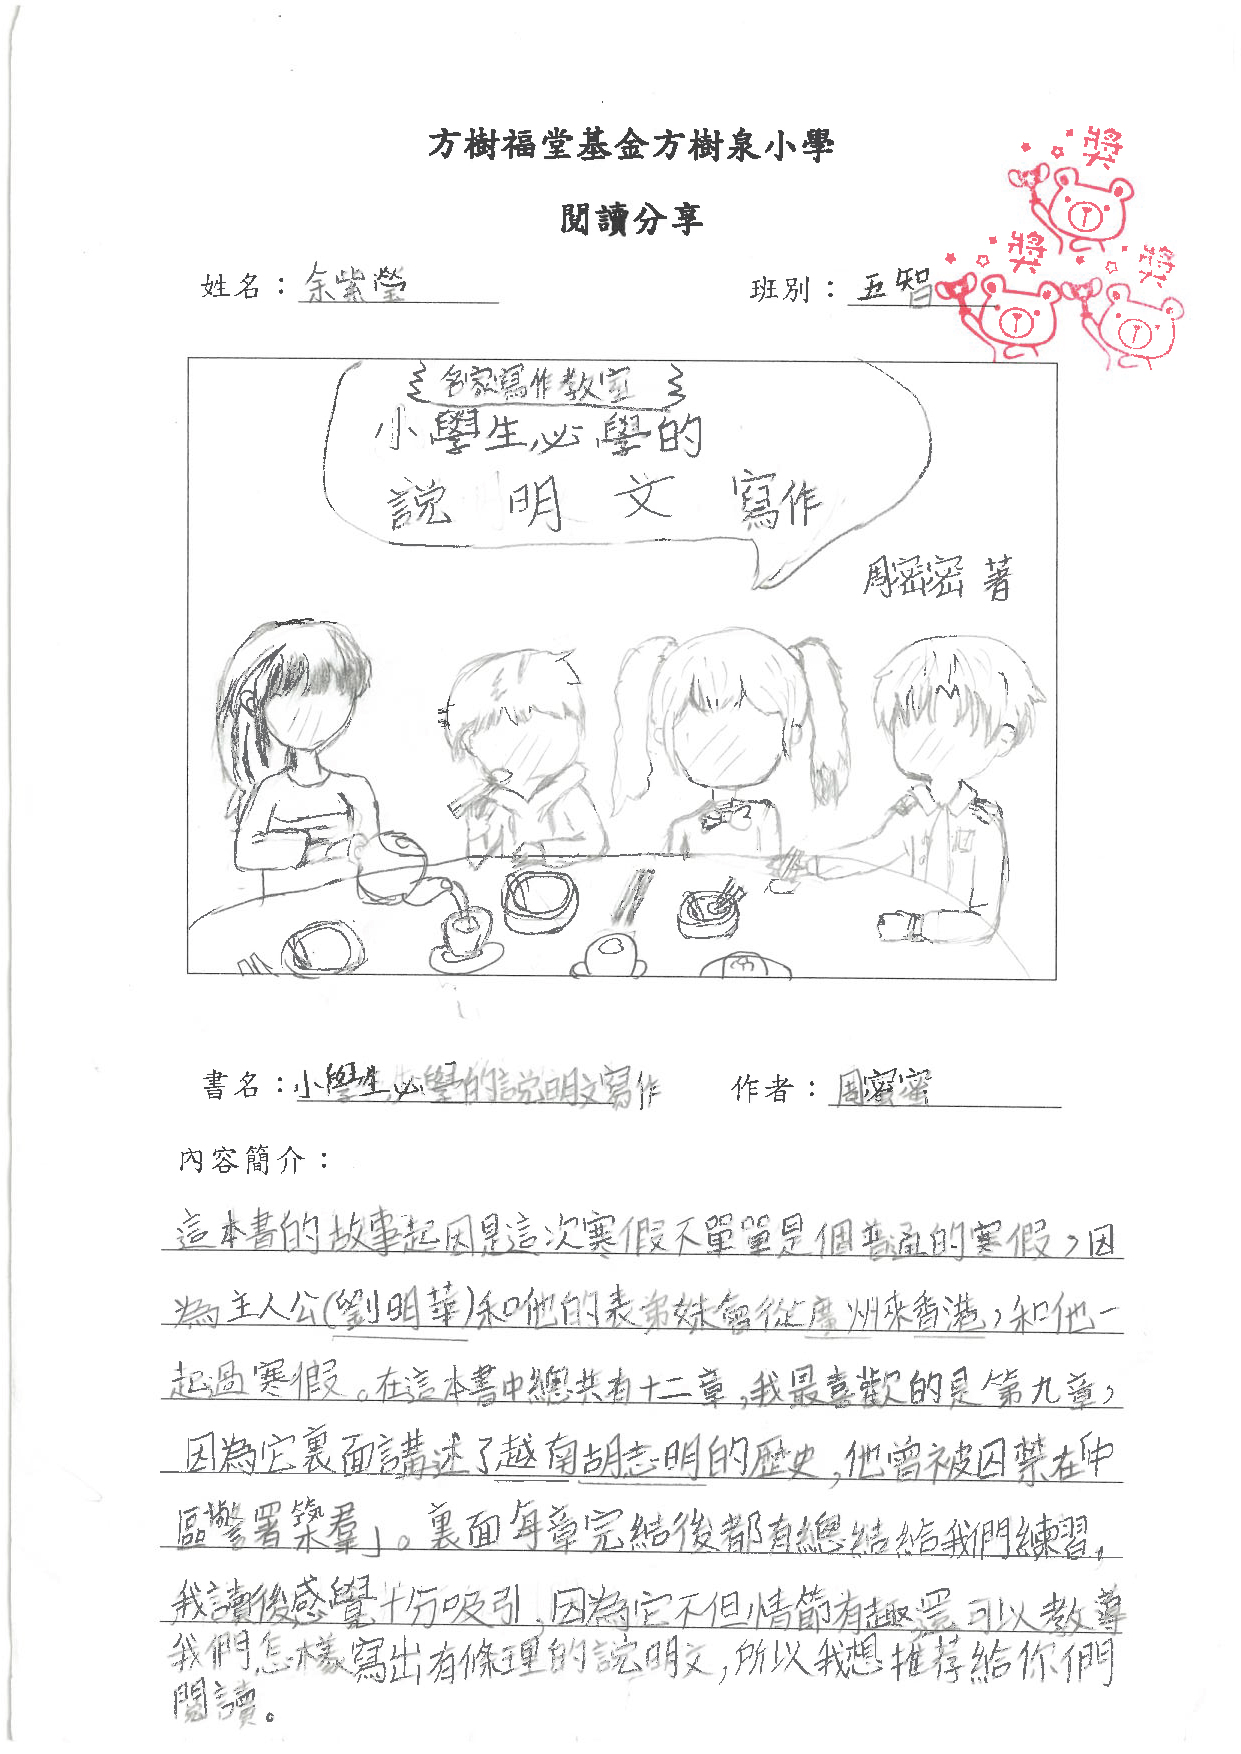 方樹福堂基金方樹泉小學
閱讀分享
獎
獎
獎
姓名：余紫瑩
班別：五智
名家寫作教室
小學生必學的
說明文寫作
周密密 著
書名：小學生必學的說明文寫作
作者：周蜜蜜
內容簡介：
這本書的故事起因是這次寒假不單單是個普通的寒假，因
為主人公(劉明華)和他的表弟妹會從廣州來香港，和他一
起過寒假。在這本書中總共有十二章，我最喜歡的是第九章，
因為它裏面講述了越南胡志明的歷史，他曾被囚禁在「中
區警署築羣」。裏面每章完結後都有總結給我們練習，
我讀後感覺十分吸引，因為它不但情節有趣，還可以教導
我們怎樣寫出有條理的說明文，所以我想推荐給你們
閱讀。